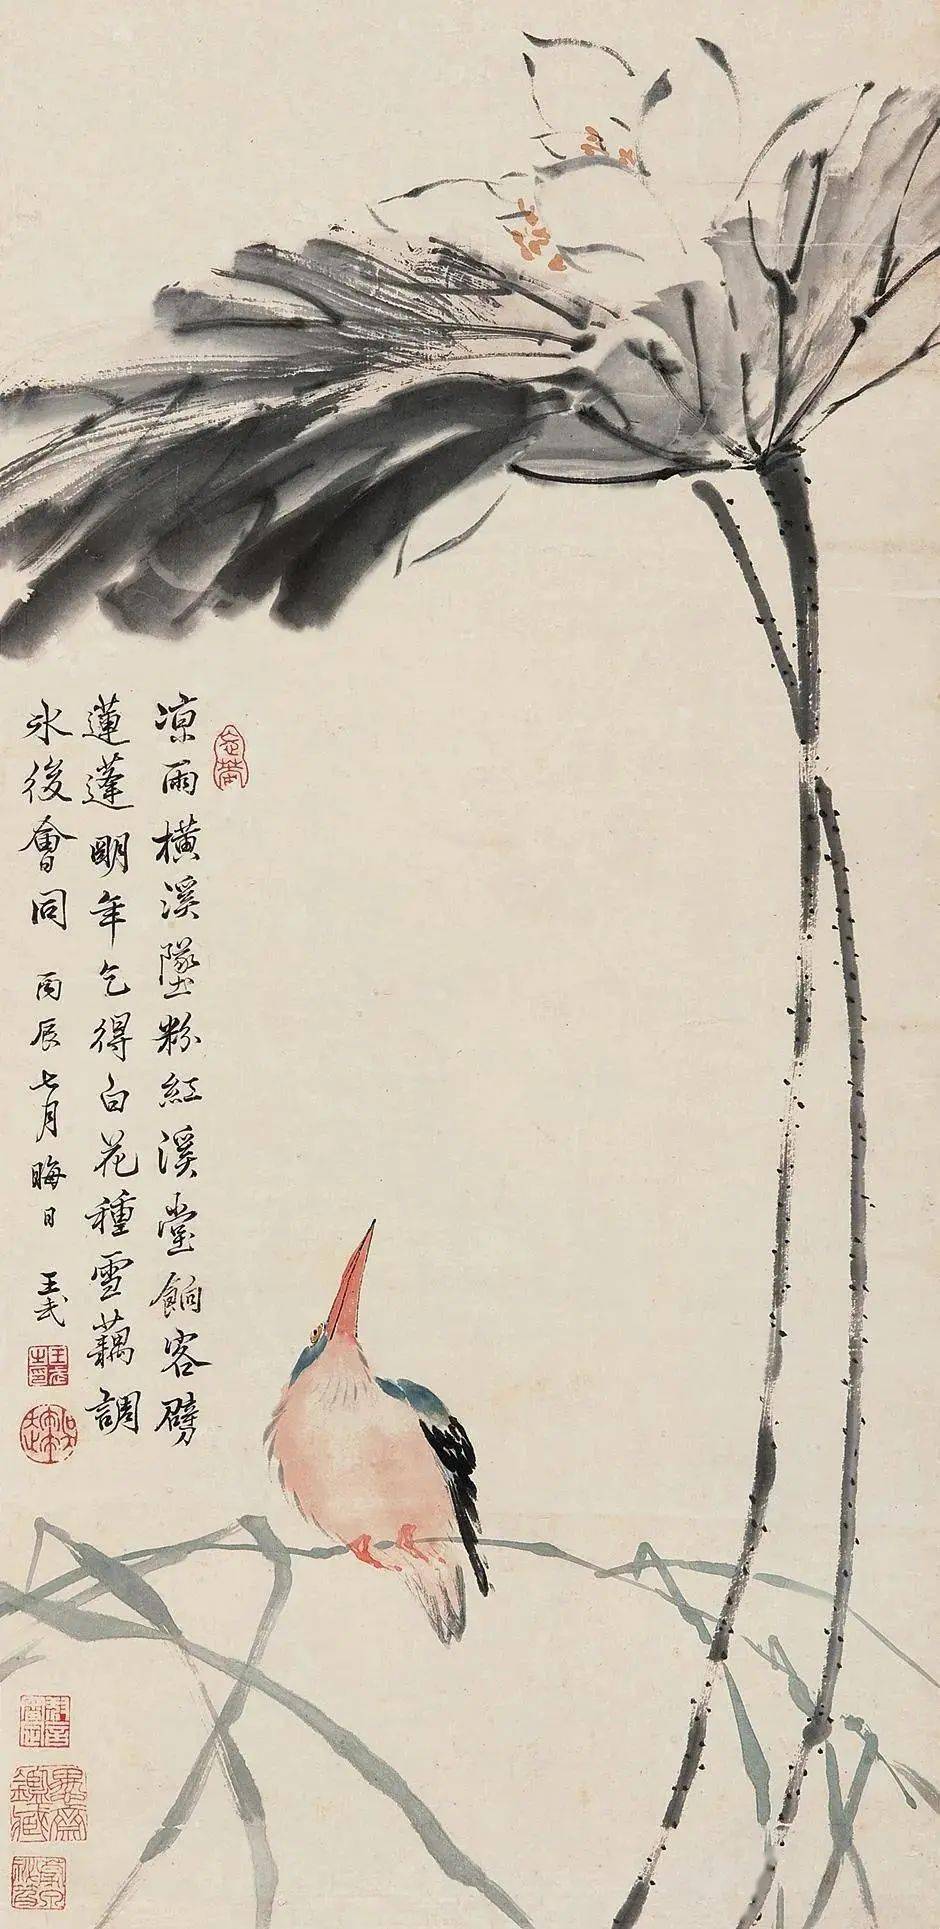 凉雨橫溪墜粉紅溪堂餉客劈
蓮蓬明年乞得白花種雪藕調
冰後會同 丙辰七月晦日 王武